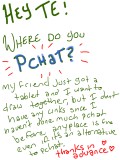 HEY TE!
WHERE DO YOU
PCHAT?
My friend Just got a
tablet and I want to
draw together, but I don't
have any links since I
haven't done much pchat
before. any place is fine
even if its an alternative
to pchat.
thanks in
advance ♥